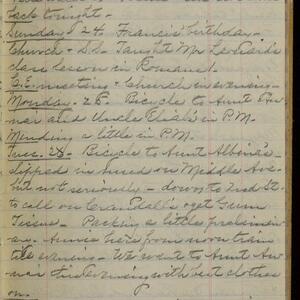 back tonight.
Sunday - 24. Francis' birthday -
Church - S.S. Taught Mr Leonard's
class lesson in Romans 1.
C.E. meeting & Church in evening -
Monday - 25. Bicycle to Aunt An-
na's and Uncle in P.M.
Mending a little in P.M.
Tues. 26 - Bicycle to Aunt Albina's
slipped in mud on Middle Ave.
but not seriously - down to 2nd St.
to call on Crandalls & get Gum
Tissue - Packing a little prelimin-
ary. Annie here from noon train
till evening - We went to Aunt An-
na's evening with best clothes
on.